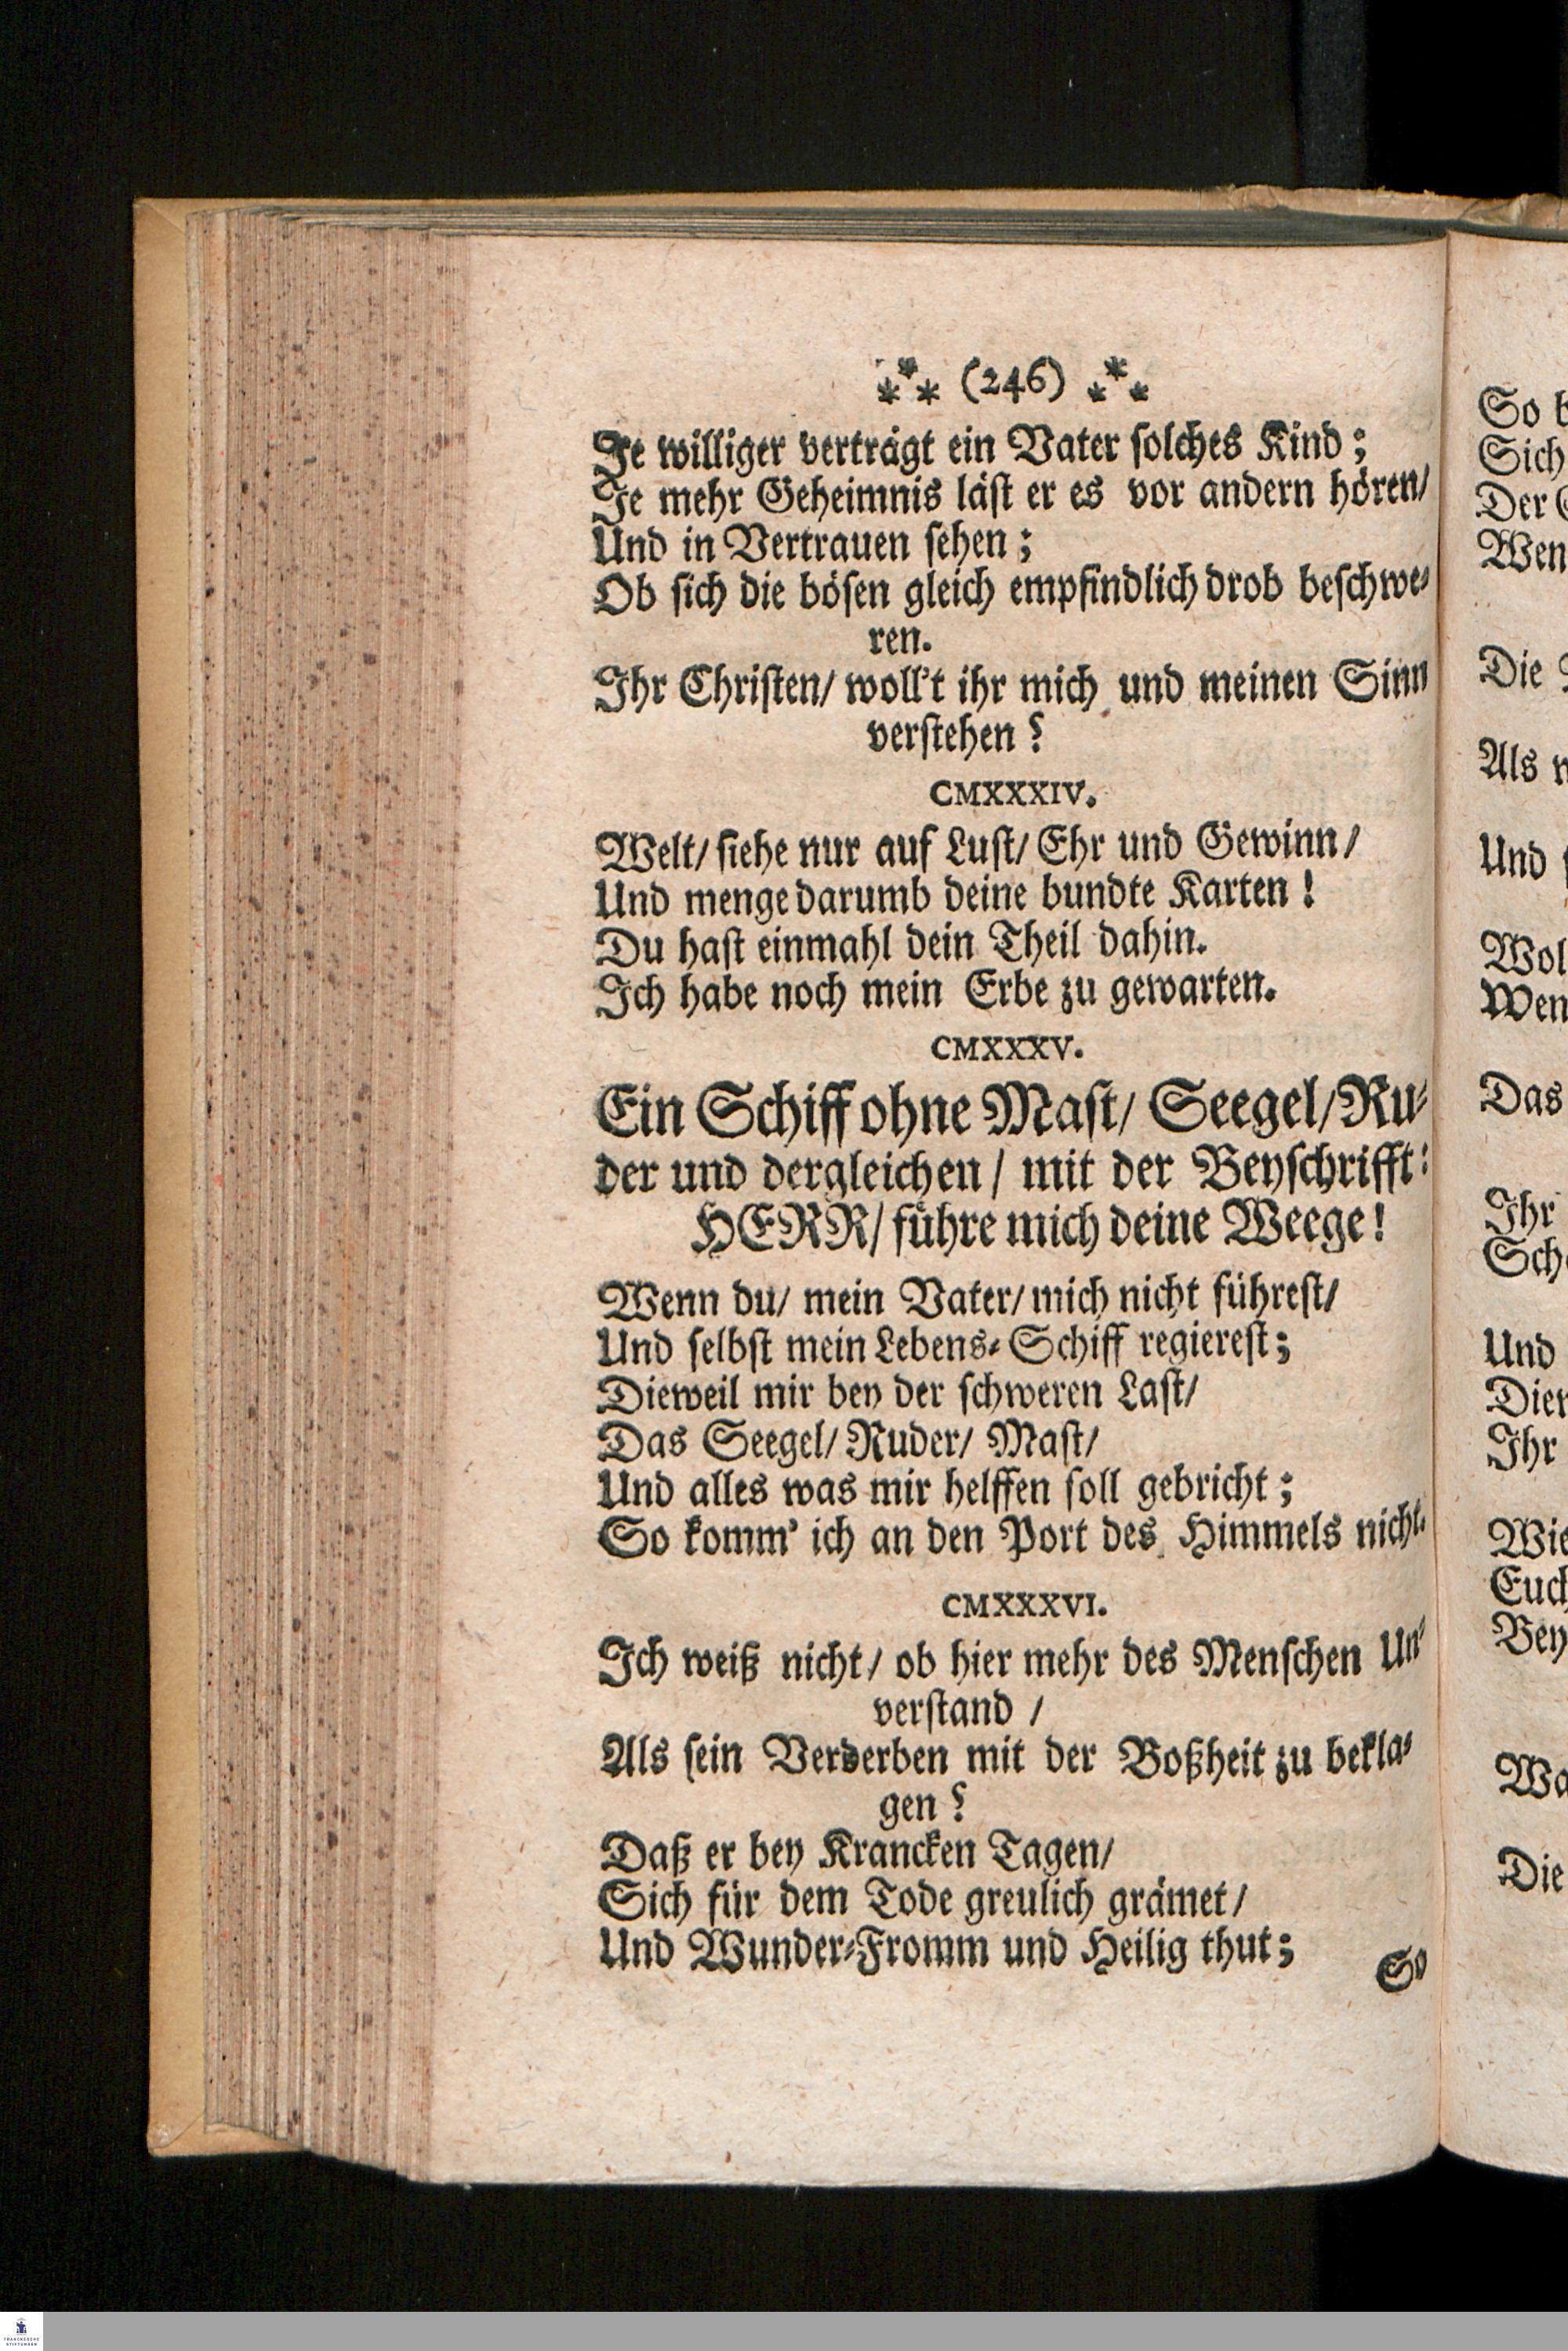 ⁂ (246) ⁂
Je williger verträgt ein Vater ſolches Kind;
Je mehr Geheimnis läſt er es vor andern hören/
Und in Vertrauen ſehen;
Ob ſich die böſen gleich empfindlich drob beſchwe-
ren.
Ihr Chriſten/ woll't ihr mich und meinen Sinn
verſtehen?
CMXXXIV.
Welt/ ſiehe nur auf Luſt/ Ehr und Gewinn/
Und menge darumb deine bundte Karten!
Du haſt einmahl dein Theil dahin.
Ich habe noch mein Erbe zu gewarten.
CMXXXV.
Ein Schiff ohne Maſt/ Seegel/ Ru-
der und dergleichen/ mit der Beyſchrifft:
HERR/ führe mich deine Weege!
Wenn du/ mein Vater/ mich nicht führeſt/
Und ſelbſt mein Lebens-Schiff regiereſt;
Dieweil mir bey der ſchweren Laſt/
Das Seegel/ Ruder/ Maſt/
Und alles was mir helffen ſoll gebricht;
So komm' ich an den Port des Himmels nicht.
CMXXXVI.
Ich weiß nicht/ ob hier mehr des Menſchen Un-
verſtand/
Als ſein Verderben mit der Boßheit zu bekla-
gen?
Daß er bey Krancken Tagen/
Sich für dem Tode greulich grämet/
Und Wunder-Fromm und Heilig thut;
So
So
Sich
Der
Wen
Die
Als
Und
Wol
Wen
Das
Ihr
Sch
Und
Dier
Ihr
Wie
Euch
Bey
Wa
Die
FRANCKESCHE
STIFTUNGEN